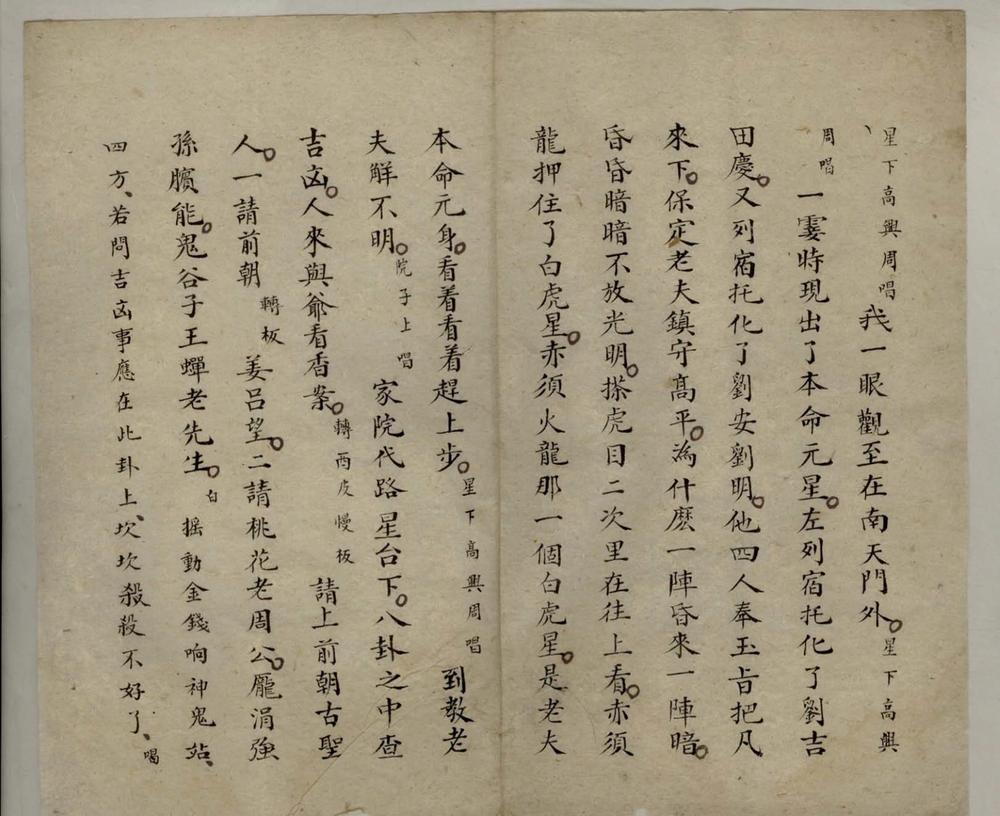 星下高興周唱 我一眼觀至在南天門外。星下高興
周唱 一霎時現出了本命元星。左列宿托化了劉吉
田慶。又列宿托化了劉安劉明。他四人奉玉旨把凡
來下。保定老夫鎮守高平。為什麽一陣昏來一陣暗。
昏昏暗暗不放光明。搽虎目二次里在往上看。赤須
龍押住了白虎星。赤須火龍那一個白虎星。是老夫
本命元身。看看看着趕上步。星下高興周唱 到教老
夫觧不明。院子上唱 家院代路星台下。八卦之中查
吉凶。人來與爺看香案。轉西皮慢板 請上前朝古聖
人。一請前朝 轉板 姜吕望。二請桃花老周公。龐涓強
孫臏能。鬼谷子王蟬老先生。白 摇動金錢响神鬼站、
四方、若問吉凶事應在此卦上、坎、坎殺殺不好了、唱